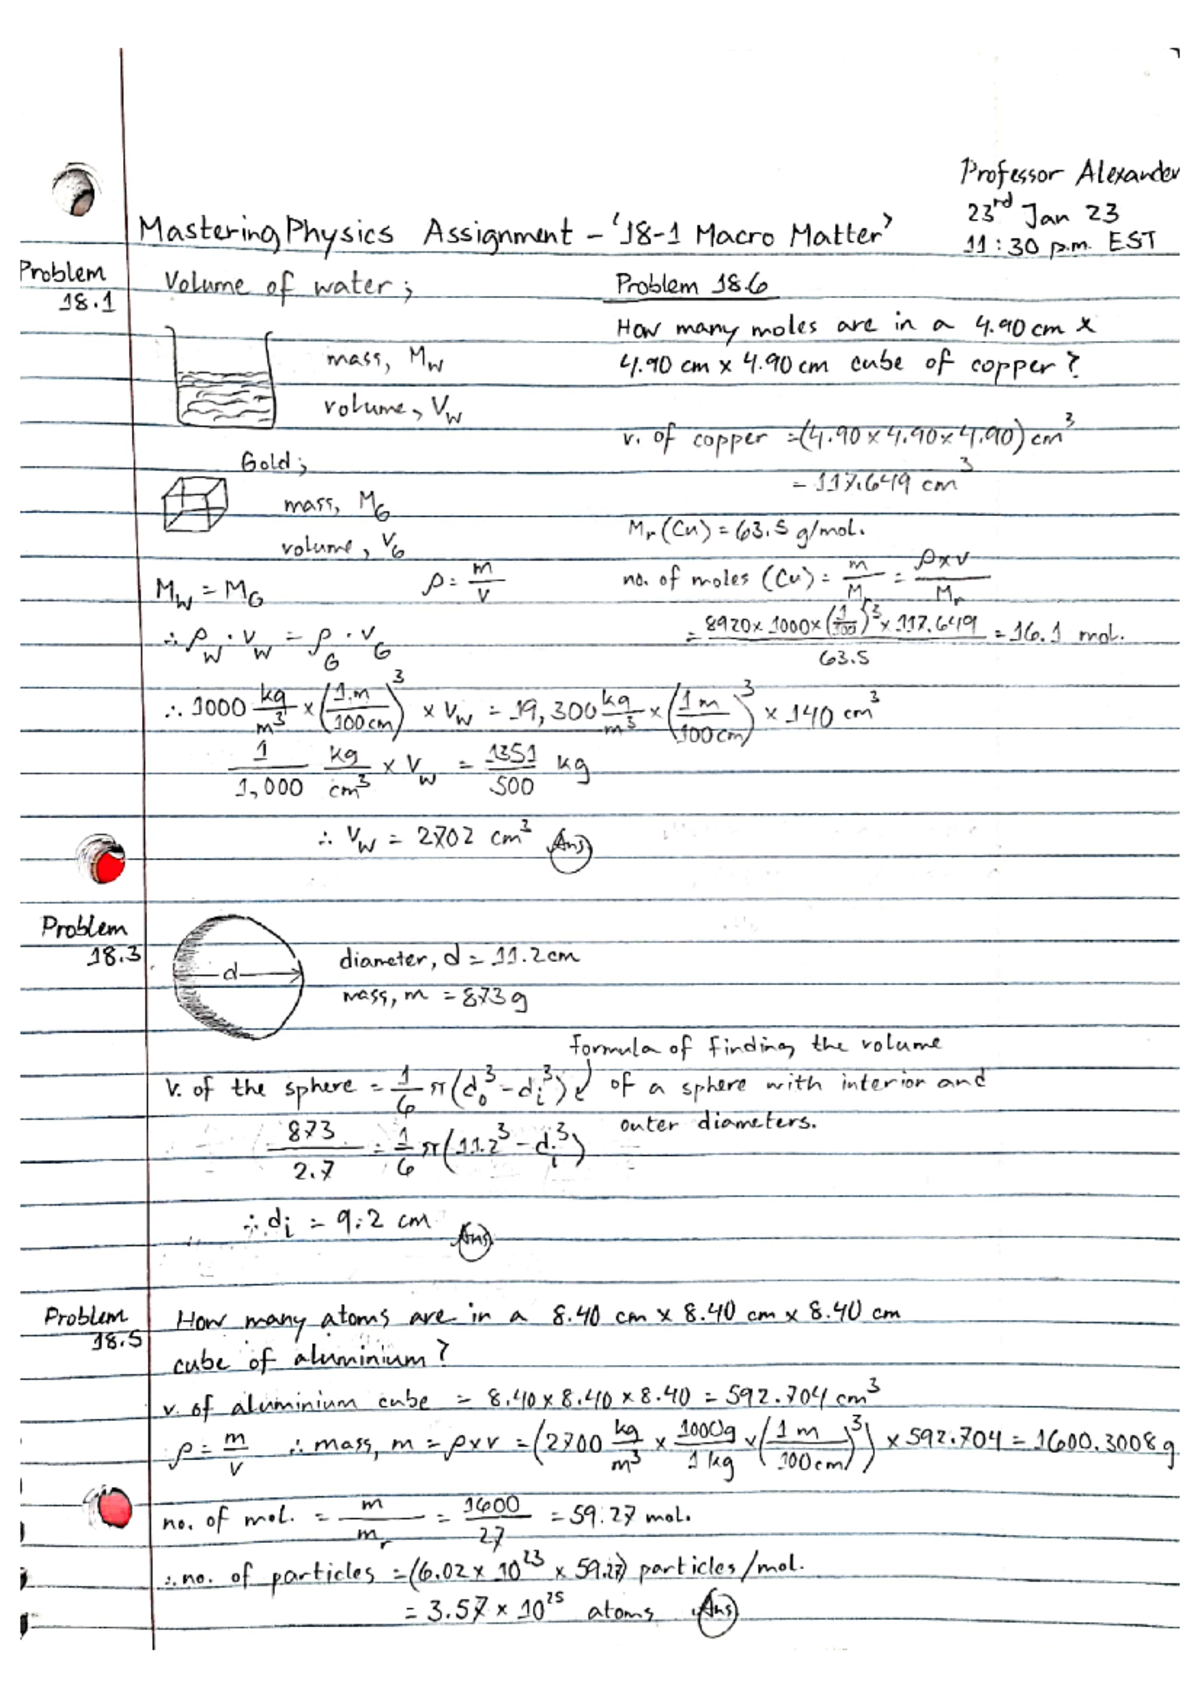 Professor Alexander
23rd Jan 23
11:30 p.m. EST
Mastering Physics Assignment - '18-1 Macro Matter'
Problem 18.1
Volume of water;
mass, Mw
volume, Vw
Gold;
mass, MG
volume, VG
Mw = MG
ρ = m/v
∴ ρw · Vw = ρG · VG
∴ 1000 kg/m³ × (1 m/100 cm)³ × Vw = 19,300 kg/m³ × (1 m/100 cm)³ × 140 cm³
1/1,000 kg/cm³ × Vw = 1351/500 kg
∴ Vw = 2702 cm³ Ans
Problem 18.6
How many moles are in a 4.90 cm ×
4.90 cm × 4.90 cm cube of copper?
v. of copper = (4.90 × 4.90 × 4.90) cm³
= 117.649 cm³
Mr (Cu) = 63.5 g/mol.
no. of moles (Cu) = m/Mr = ρ×v/Mr
= 8920 × 1000 × (1/100)³ × 117.649 / 63.5 = 16.1 mol.
Problem 18.3
d
diameter, d = 11.2 cm
mass, m = 873 g
formula of finding the volume
of a sphere with interior and
outer diameters.
V. of the sphere = 1/6 π (do³ - di³)
873/2.7 = 1/6 π (11.2³ - di³)
∴ di = 9.2 cm Ans
Problem 18.5
How many atoms are in a 8.40 cm × 8.40 cm × 8.40 cm
cube of aluminium?
v. of aluminium cube = 8.40 × 8.40 × 8.40 = 592.704 cm³
ρ = m/v ∴ mass, m = ρ×v = (2700 kg/m³ × 1000g/1 kg × (1 m/100 cm)³) × 592.704 = 1600.3008 g
no. of mol. = m/mr = 1600/27 = 59.27 mol.
∴ no. of particles = (6.02 × 10²³ × 59.27) particles/mol.
= 3.57 × 10²⁵ atoms Ans